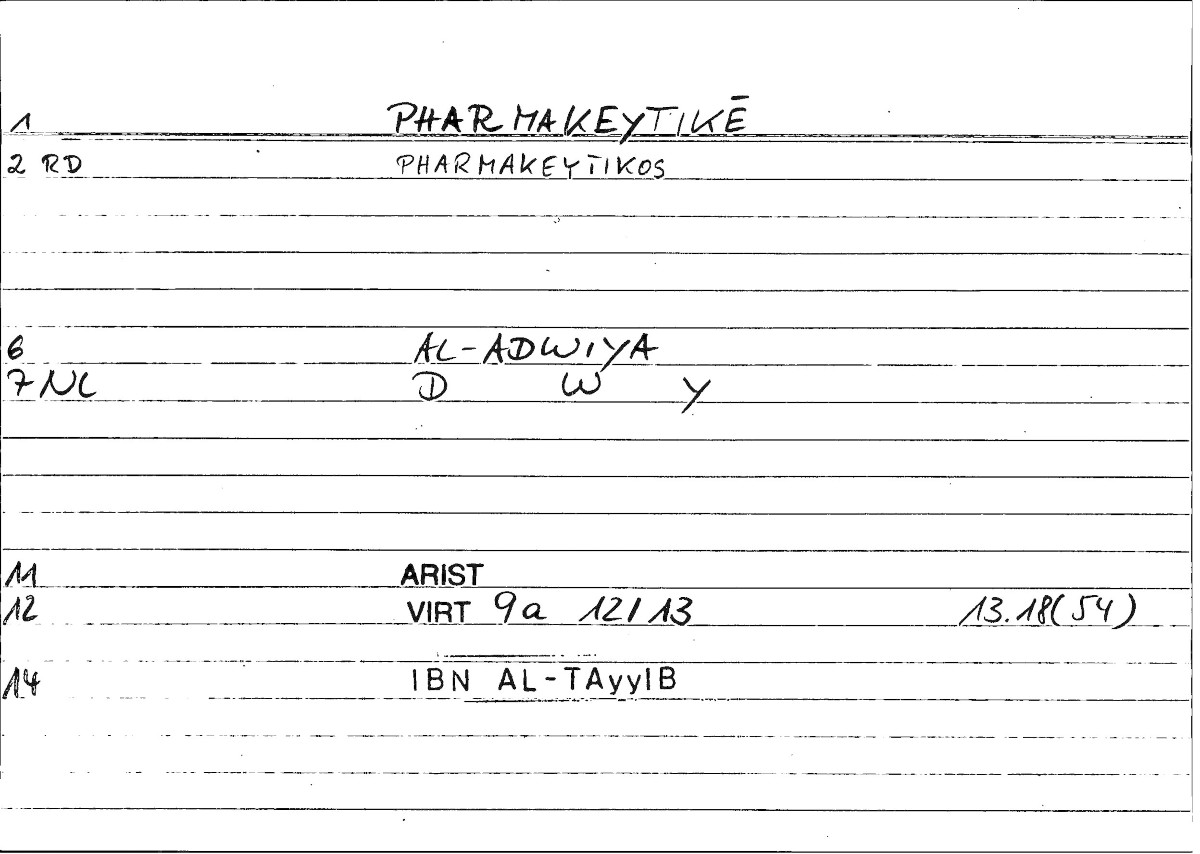 1 PHARMAKEYTIKĒ
2 RD PHARMAKEYTIKOS
6 AL-ADWIYA
7 NL D W Y
11 ARIST
12 VIRT 9a 12/13 13.18(54)
14 IBN AL-TAyyIB